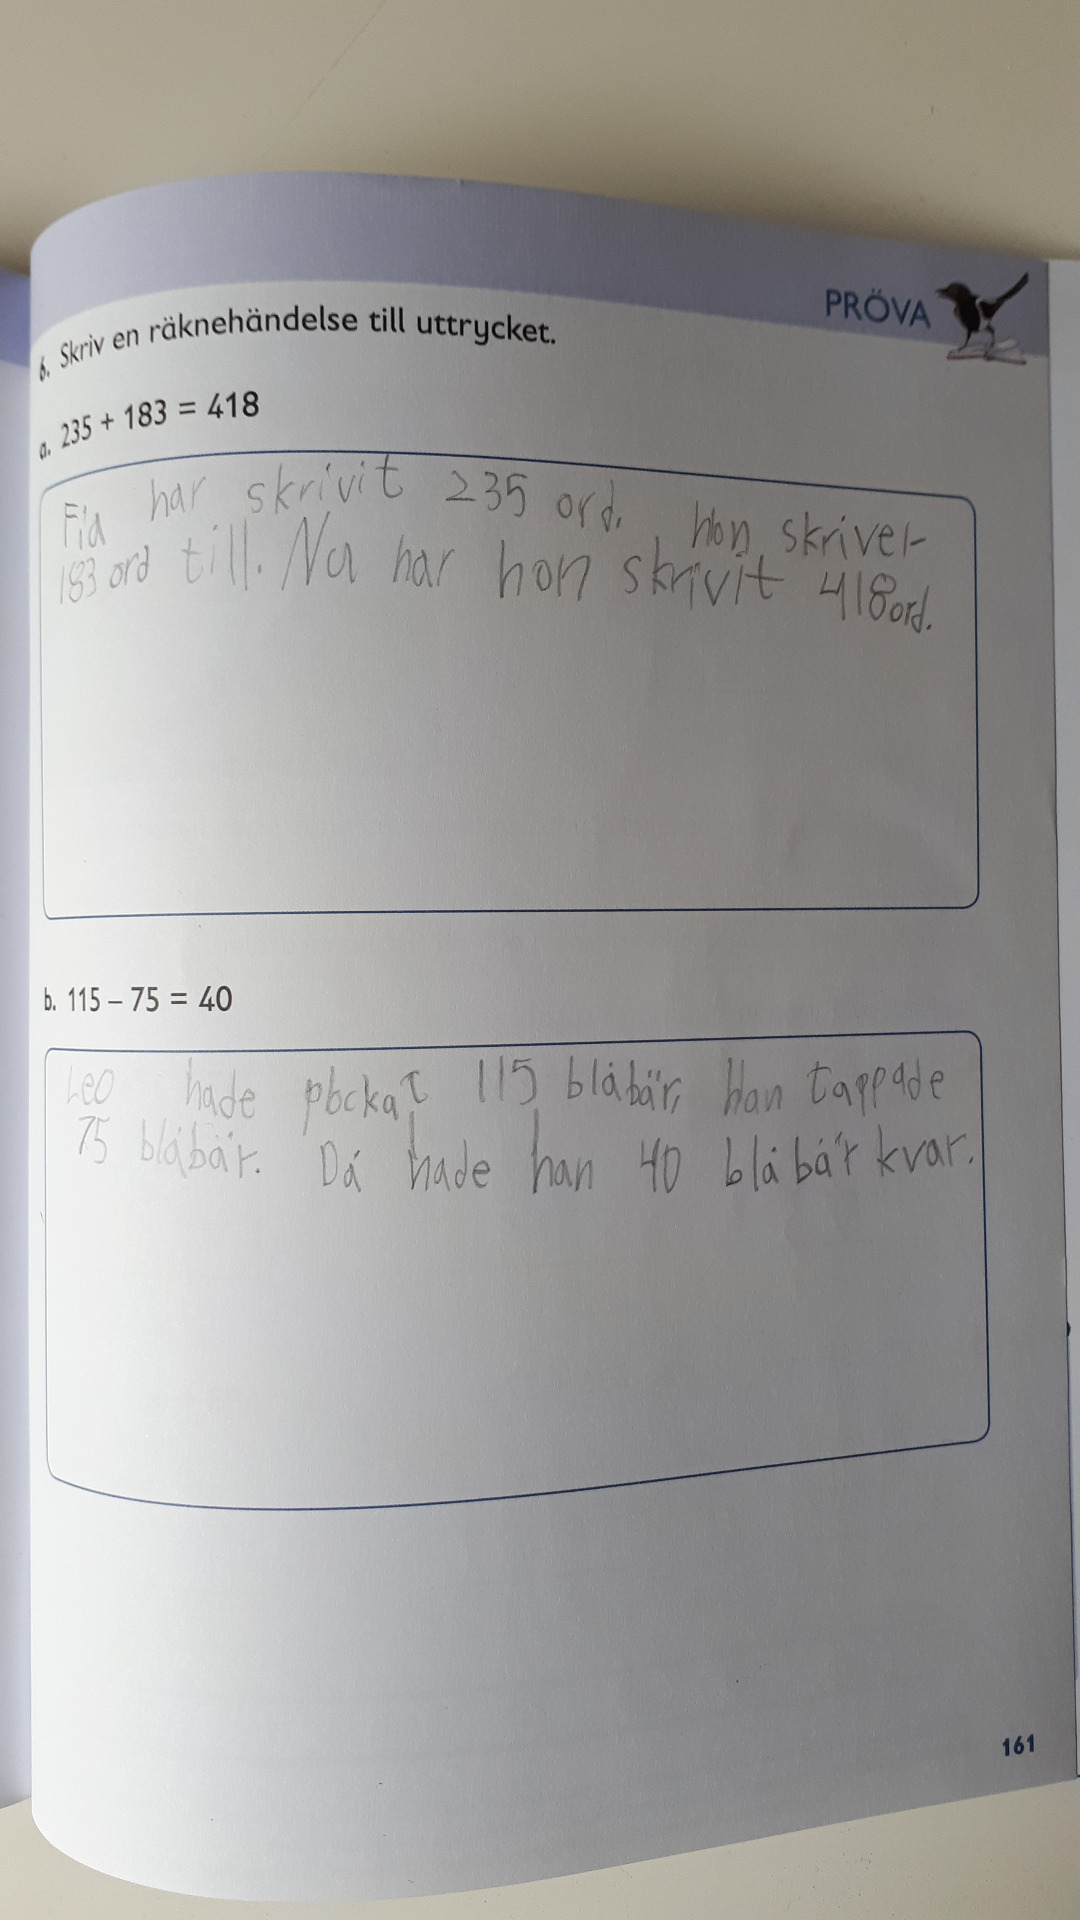 PRÖVA
6. Skriv en räknehändelse till uttrycket.
a. 235 + 183 = 418
Fia har skrivit 235 ord. hon skriver
183 ord till. Nu har hon skrivit 418 ord.
b. 115 – 75 = 40
Leo hade plockat 115 blåbär, Han tappade
75 blåbär. Då hade han 40 blåbär kvar.
161